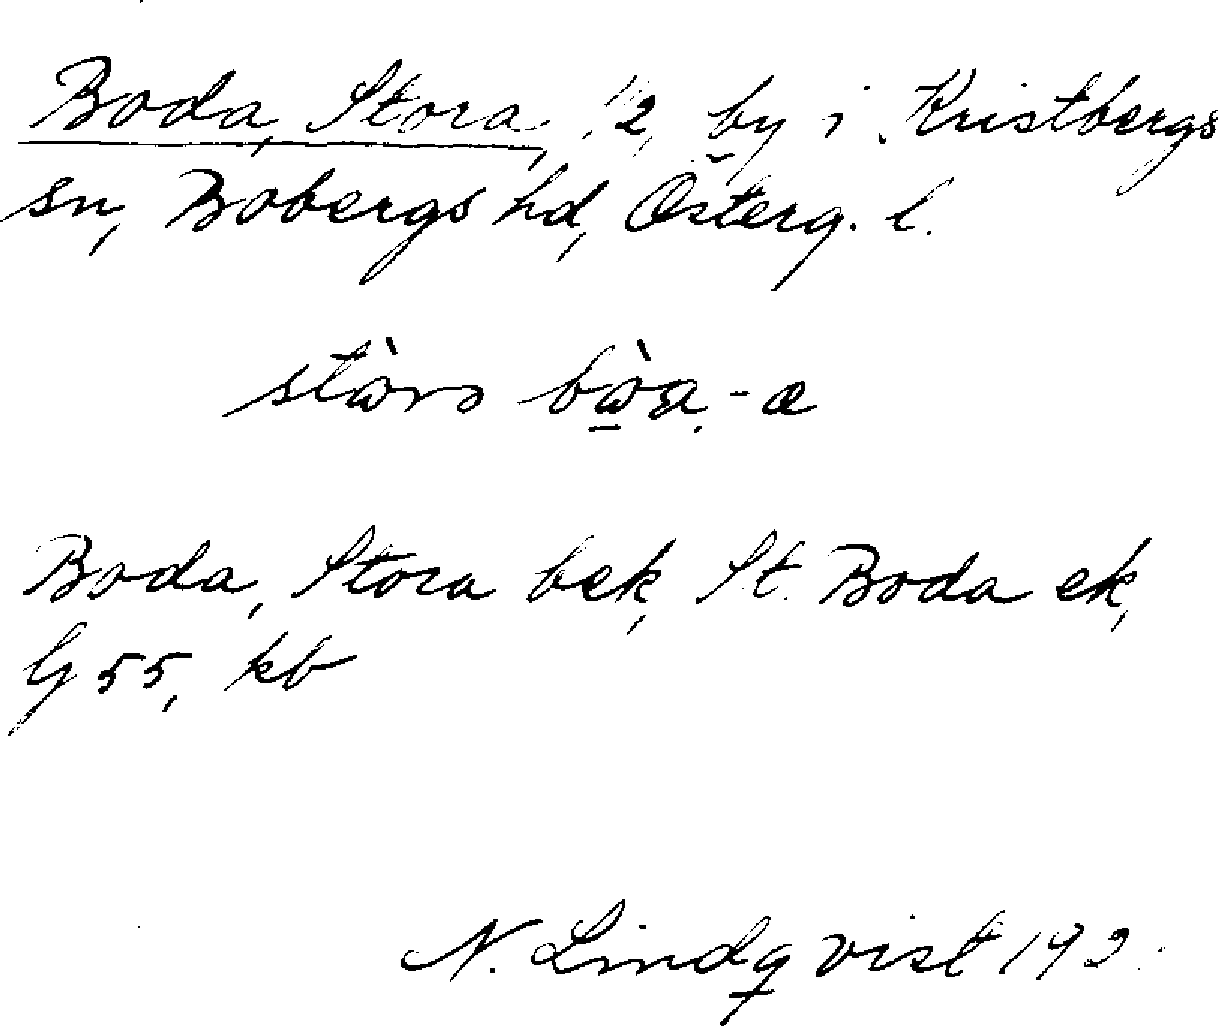 Boda, Stora, 1/2, by i Kristbergs
sn, Bobergs hd, Österg. l.
Boda, Stora bek, St. Boda ek,
G 55, kb
N. Lindqvist 192